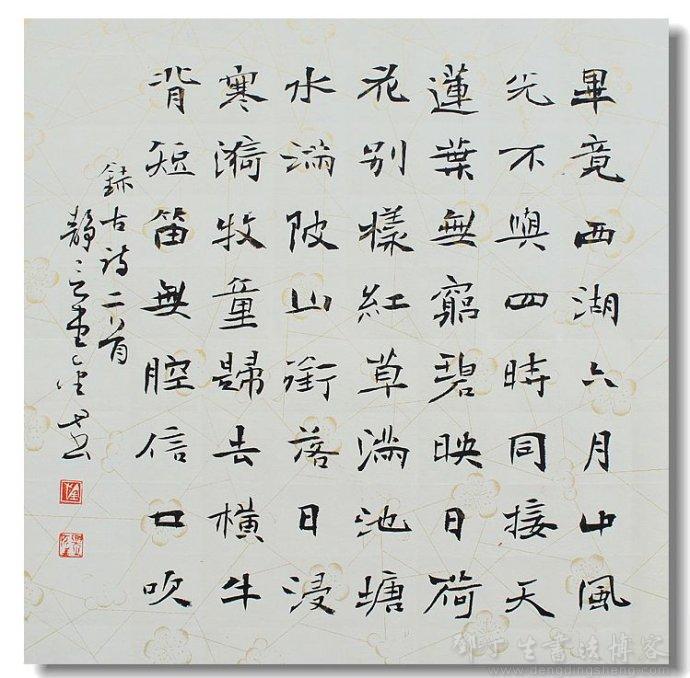 畢竟西湖六月中風
光不與四時同接天
蓮葉無窮碧映日荷
花別樣紅草滿池塘
水滿陂山銜落日浸
寒漪牧童歸去橫牛
背短笛無腔信口吹
錄古詩二首
靜
鄧丁生書法博客
www.dengdingsheng.com